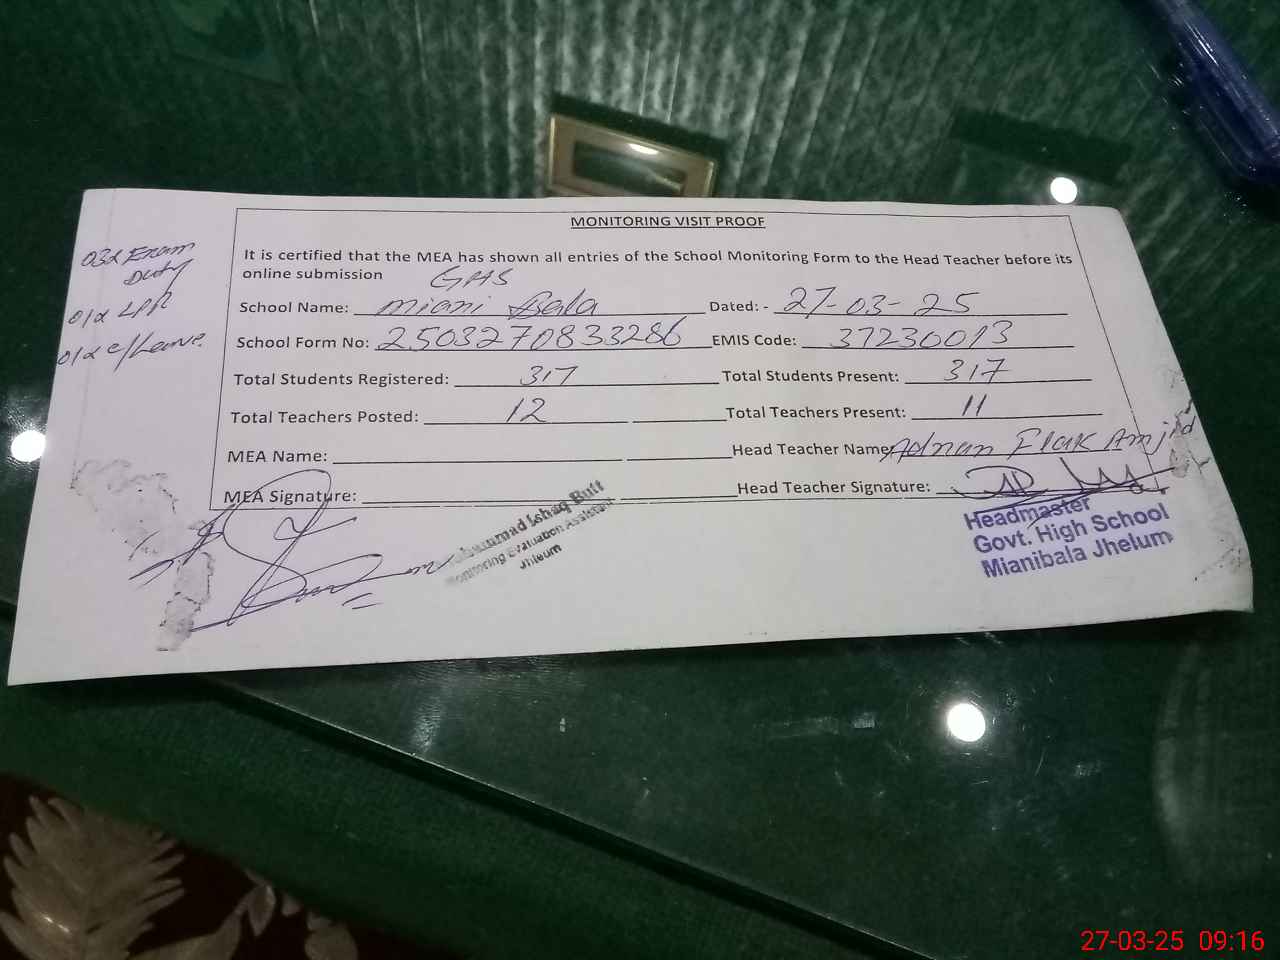 MONITORING VISIT PROOF
It is certified that the MEA has shown all entries of the School Monitoring Form to the Head Teacher before its
online submission
GHS
School Name: Miani Bala Dated: - 27-03-25
School Form No: 2503270833286 EMIS Code: 37230013
Total Students Registered: 317 Total Students Present: 317
Total Teachers Posted: 12 Total Teachers Present: 11
MEA Name: Head Teacher Name Adnan Amjid
MEA Signature: Head Teacher Signature:
03 Exam
Duty
01
01 c/Leave
Muhammad Ishaq Butt
Monitoring Evaluation Assistant
Jhleum
Headmaster
Govt. High School
Mianibala Jhelum
27-03-25 09:16